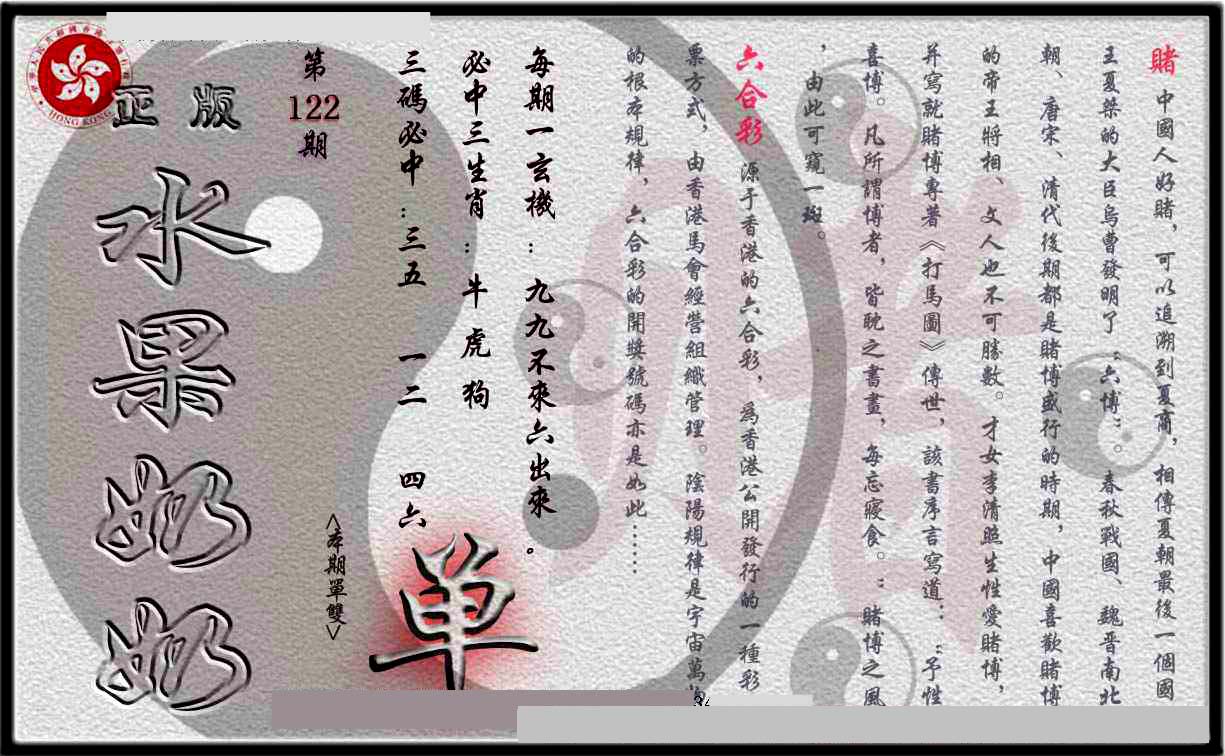 賭 中國人好賭，可以追溯到夏商，相傳夏朝最後一個國
王夏桀的大臣烏曹發明了“六博”。春秋戰國、魏晋南北
朝、唐宋、清代後期都是賭博盛行的時期，中國喜歡賭博
的帝王將相、文人也不可勝數。才女李清照生性愛賭博，
并寫就賭博專著《打馬圖》傳世，該書序言寫道：“予性
喜博。凡所謂博者，皆耽之晝，每忘寢食。”賭博之風
，由此可窺一斑。
六合彩 源于香港的六合彩，為香港公開發行的一種彩
票方式，由香港馬會經營組織管理。陰陽規律是宇宙萬物
的根本規律，六合彩的開獎號碼亦是如此……
每期一玄機：九九不來六出來。
必中三生肖：牛 虎 狗
三碼必中：三五 一二 四六
單
<本期單雙>
第
122
期
正版
水果奶奶
HONG KONG